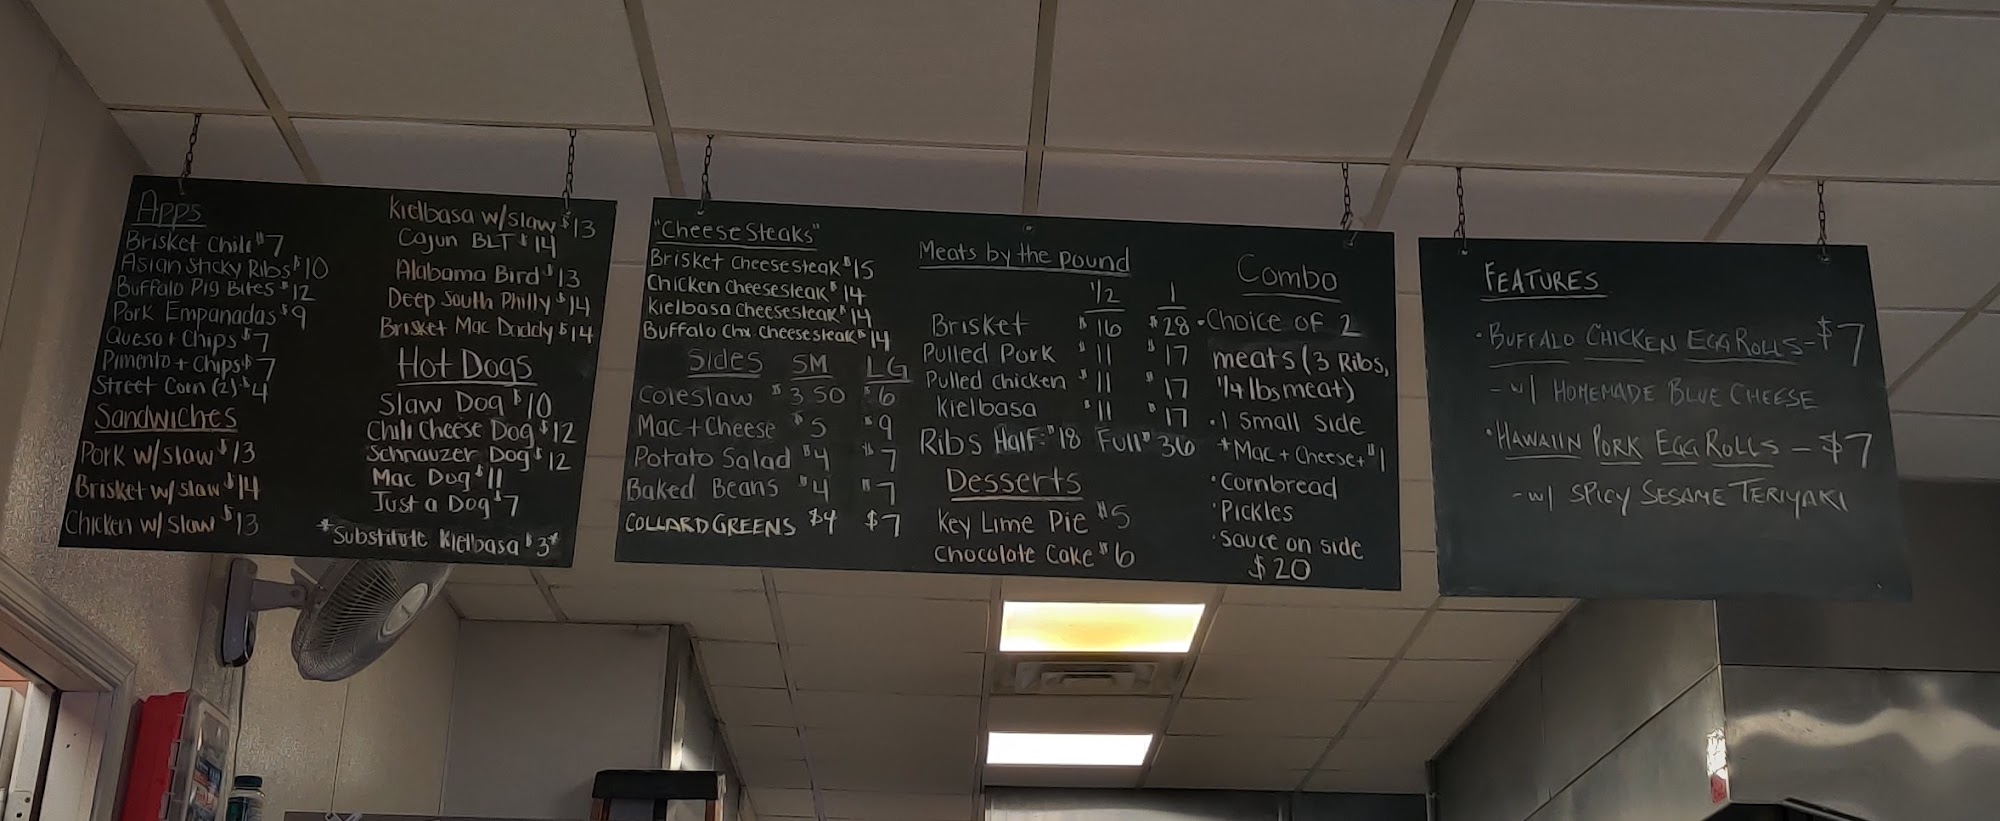 Apps
Brisket Chili $7
Asian Sticky Ribs $10
Buffalo Pig Bites $12
Pork Empanadas $9
Queso + Chips $7
Pimento + Chips $7
Street Corn (2) $4
Sandwiches
Pork w/slaw $13
Brisket w/slaw $14
Chicken w/slaw $13
Kielbasa w/slaw $13
Cajun BLT $14
Alabama Bird $13
Deep South Philly $14
Brisket Mac Daddy $14
Hot Dogs
Slaw Dog $10
Chili Cheese Dog $12
Schnauzer Dog $12
Mac Dog $11
Just a Dog $7
*Substitute Kielbasa $3*
"Cheese Steaks"
Brisket Cheesesteak $15
Chicken Cheesesteak $14
Kielbasa Cheesesteak $14
Buffalo Chx Cheesesteak $14
Sides SM LG
Coleslaw $3.50 $6
Mac + Cheese $5 $9
Potato Salad $4 $7
Baked Beans $4 $7
COLLARD GREENS $4 $7
Meats by the pound
1/2 1
Brisket $16 $28
Pulled Pork $11 $17
Pulled Chicken $11 $17
Kielbasa $11 $17
Ribs Half: $18 Full $36
Desserts
Key Lime Pie $5
Chocolate Cake $6
Combo
• Choice of 2
meats (3 Ribs,
1/4 lbs meat)
• 1 Small side
*Mac + Cheese + $1
• Cornbread
• Pickles
• Sauce on side
$20
FEATURES
• BUFFALO CHICKEN EGG ROLLS - $7
- w/ HOMEMADE BLUE CHEESE
• HAWAIIN PORK EGG ROLLS - $7
- w/ SPICY SESAME TERIYAKI